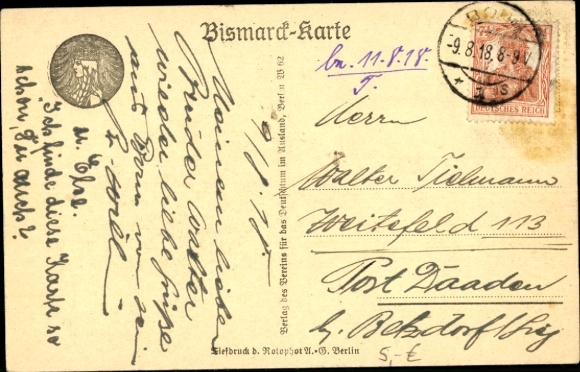 Bismarck-Karte
BONN
-9.8.18.8-9V
* 1 s
DEUTSCHES REICH
bn. 11.8.18.
T.
9/8.18.
Meinem lieben
Bruder Walter
wieder liebe Grüße
aus Bonn von Dein
u. Else.
"Ich finde diese Karte so
schön, Du auch?
Verlag des Vereins für das Deutschtum im Ausland, Berlin W 62
Herrn
Walter Tielmann
Weitefeld 113
Post Daaden
b. Betzdorf/Sieg
5,-€
Tiefdruck d. Rotophot A.-G. Berlin